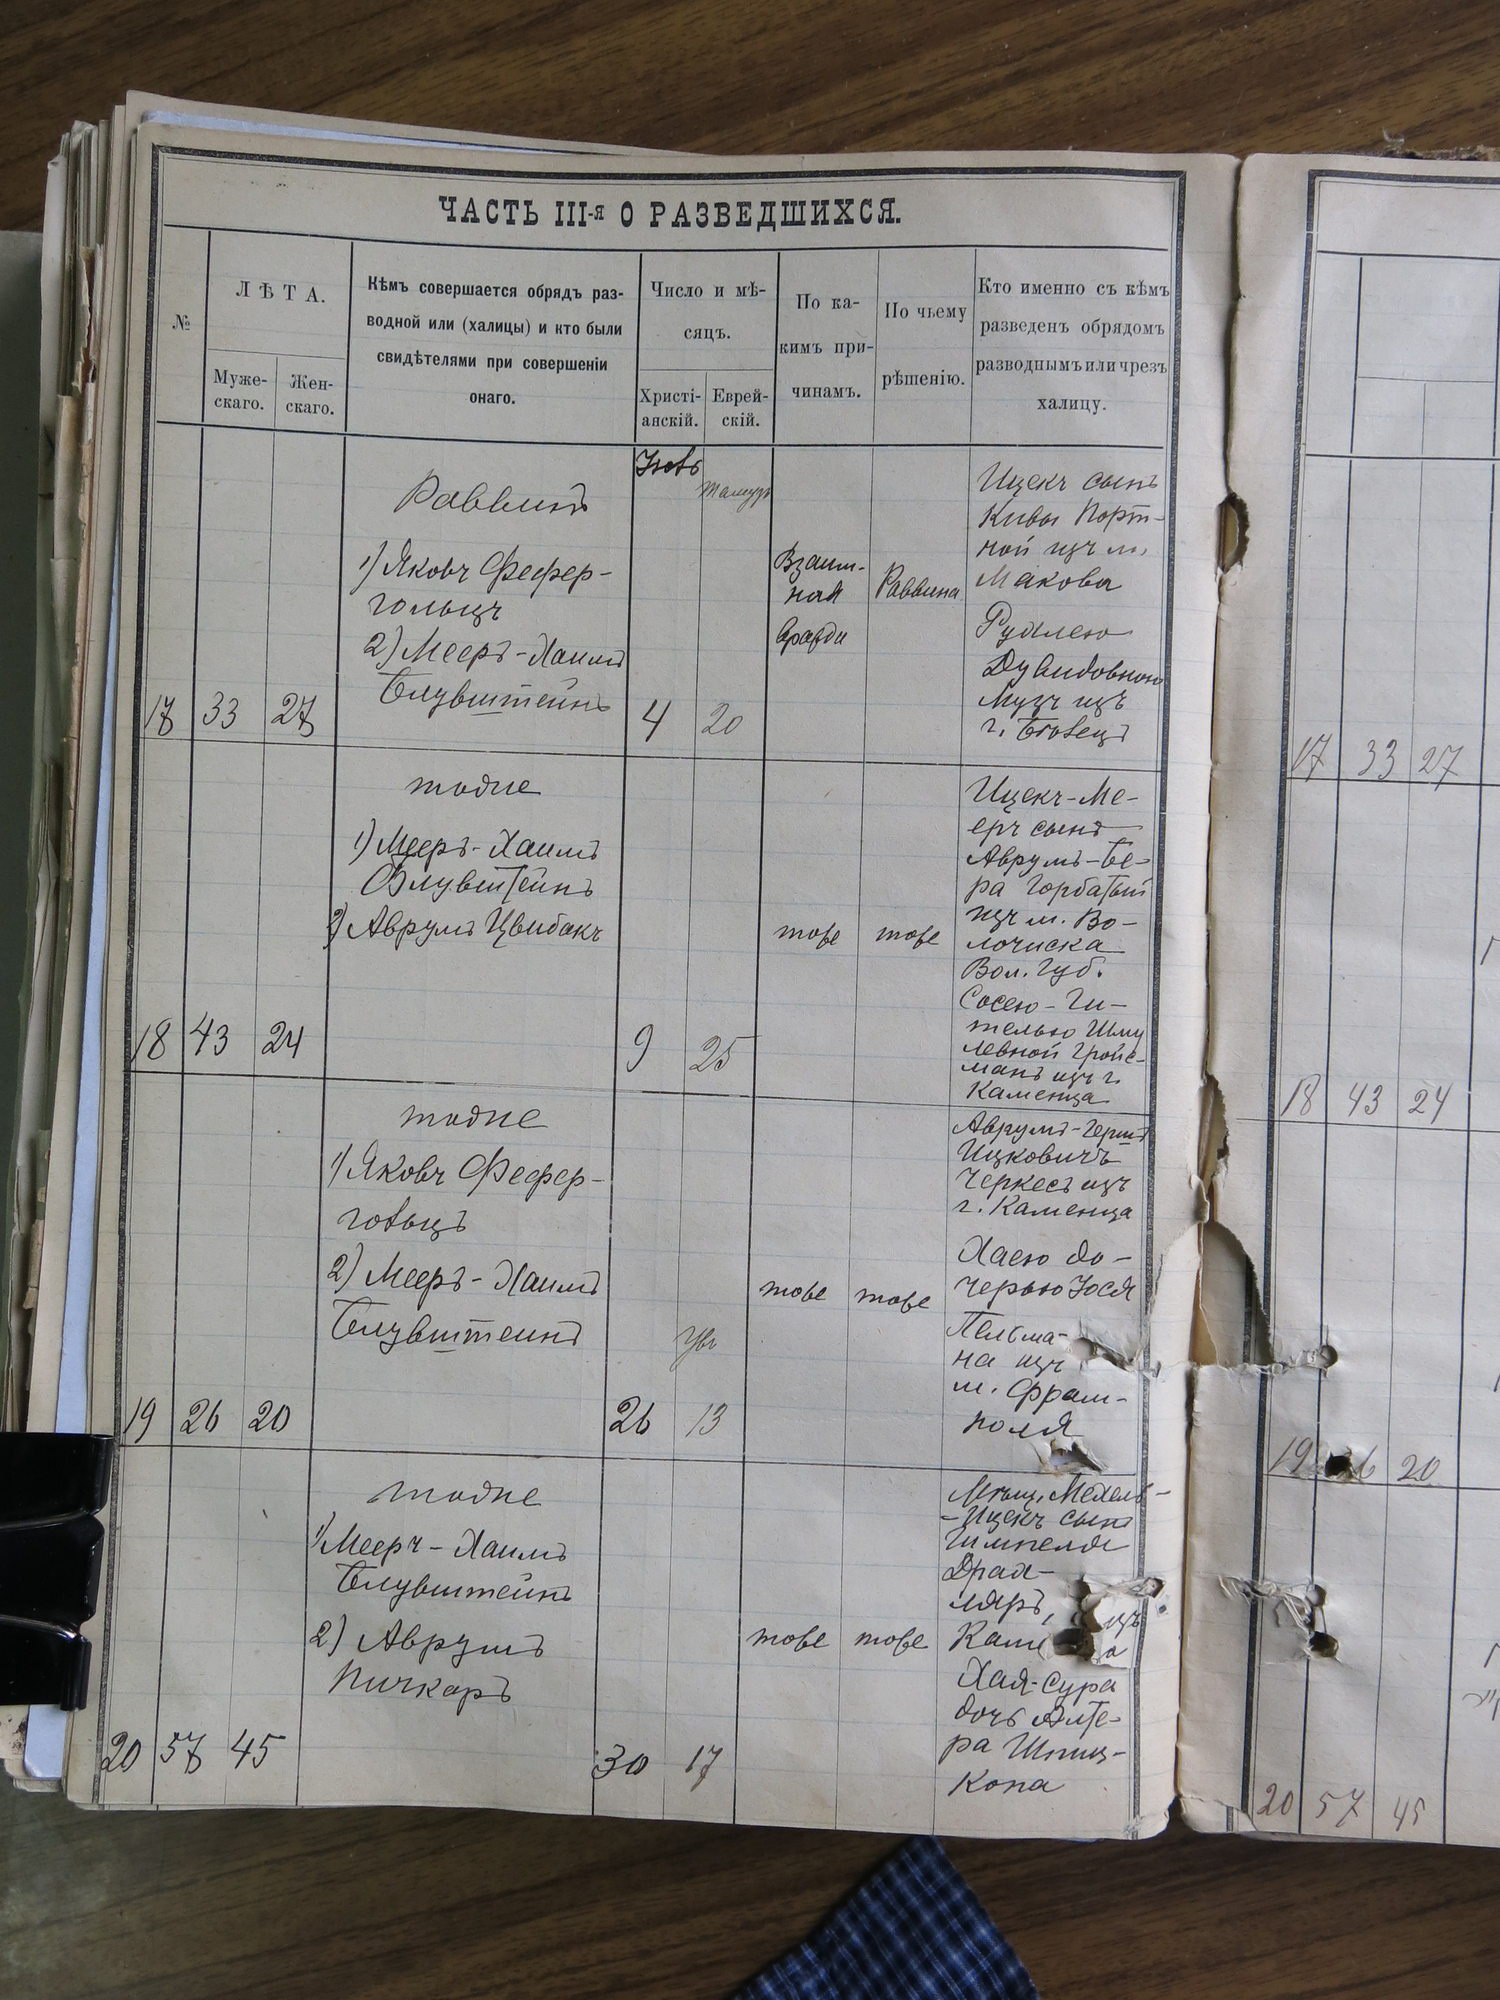 ЧАСТЬ III-я О РАЗВЕДШИХСЯ.
№
ЛѢТА.
Муже-
скаго.
Жен-
скаго.
Кѣмъ совершается обрядъ раз-
водной или (халицы) и кто были
свидѣтелями при совершеніи
онаго.
Число и мѣ-
сяцъ.
Христі-
анскій.
Еврей-
скій.
По ка-
кимъ при-
чинамъ.
По чьему
рѣшенію.
Кто именно съ кѣмъ
разведенъ обрядомъ
разводнымъ или чрезъ
халицу.
17
33
27
Раввинъ
1) Яковъ Фефер-
гольцъ
2) Мееръ-Хаимъ
Блувштейнъ
4
Тамузъ
20
Взаим-
ная
Раввина
Ицекъ сынъ
Кивы Порт-
ной изъ м.
Макова
Рухлею
Дувидовною
Музъ изъ
18
43
24
тодпе
1) Мееръ-Хаимъ
Блувштейнъ
2) Аврумъ Цвибакъ
9
25
тоже
тоже
Ицекъ-Ме-
еръ сынъ
Аврумъ-Бе-
ра Горбатый
изъ м. Во-
лочиска
Вол. Губ.
Сосею-Ги-
телью Шму
левной Гройс-
манъ изъ г.
Каменца
19
26
20
тодпе
1) Яковъ Фефер-
гольцъ
2) Мееръ-Хаимъ
Блувштейнъ
26
13
тоже
тоже
Аврумъ-Гершъ
Ицковичъ
Черкесъ изъ
г. Каменца
Хаею до-
черью Іося
Пельма-
на изъ
м. Фрам-
поля
20
57
45
тодпе
1) Мееръ-Хаимъ
Блувштейнъ
2) Аврумъ
Пичкаръ
30
17
тоже
тоже
Мѣщ. Мехель-
-Ицекъ сынъ
Гимпеля
Драх-
ляръ, изъ
Хая-Сура
дочь Алте-
ра Шпиц-
копа
17
33
27
18
43
24
19
20
20
57
45